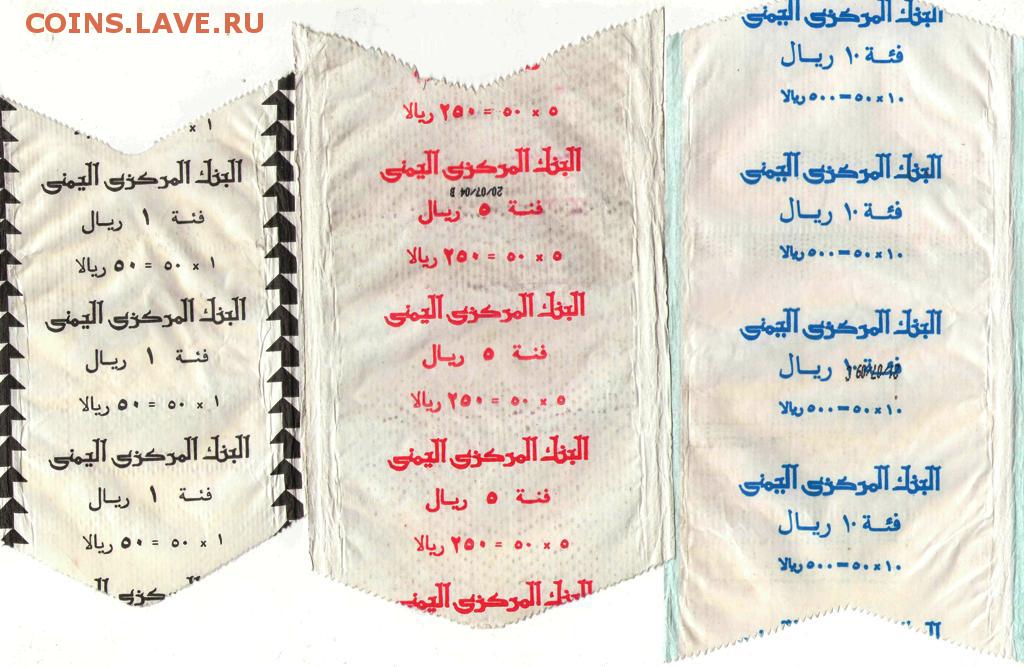 COINS.LAVE.RU
١ ×
البنك المركزى اليمنى
فئة ١ ريال
١ × ٥٠ = ٥٠ ريالا
البنك المركزى اليمنى
فئة ١ ريال
١ × ٥٠ = ٥٠ ريالا
البنك المركزى اليمنى
فئة ١ ريال
١ × ٥٠ = ٥٠ ريالا
٥ × ٥٠ = ٢٥٠ ريالا
البنك المركزى اليمنى
20/07/04 B
فئة ٥ ريال
٥ × ٥٠ = ٢٥٠ ريالا
البنك المركزى اليمنى
فئة ٥ ريال
٥ × ٥٠ = ٢٥٠ ريالا
البنك المركزى اليمنى
فئة ٥ ريال
٥ × ٥٠ = ٢٥٠ ريالا
البنك المركزى اليمنى
البنك المركزى اليمنى
فئة ١٠ ريال
١٠×٥٠=٥٠٠ ريالا
البنك المركزى اليمنى
فئة ١٠ ريال
١٠×٥٠=٥٠٠ ريالا
البنك المركزى اليمنى
فئة ١٠ ريال
١٠×٥٠=٥٠٠ ريالا
البنك المركزى اليمنى
فئة ١٠ ريال
١٠×٥٠=٥٠٠ ريالا